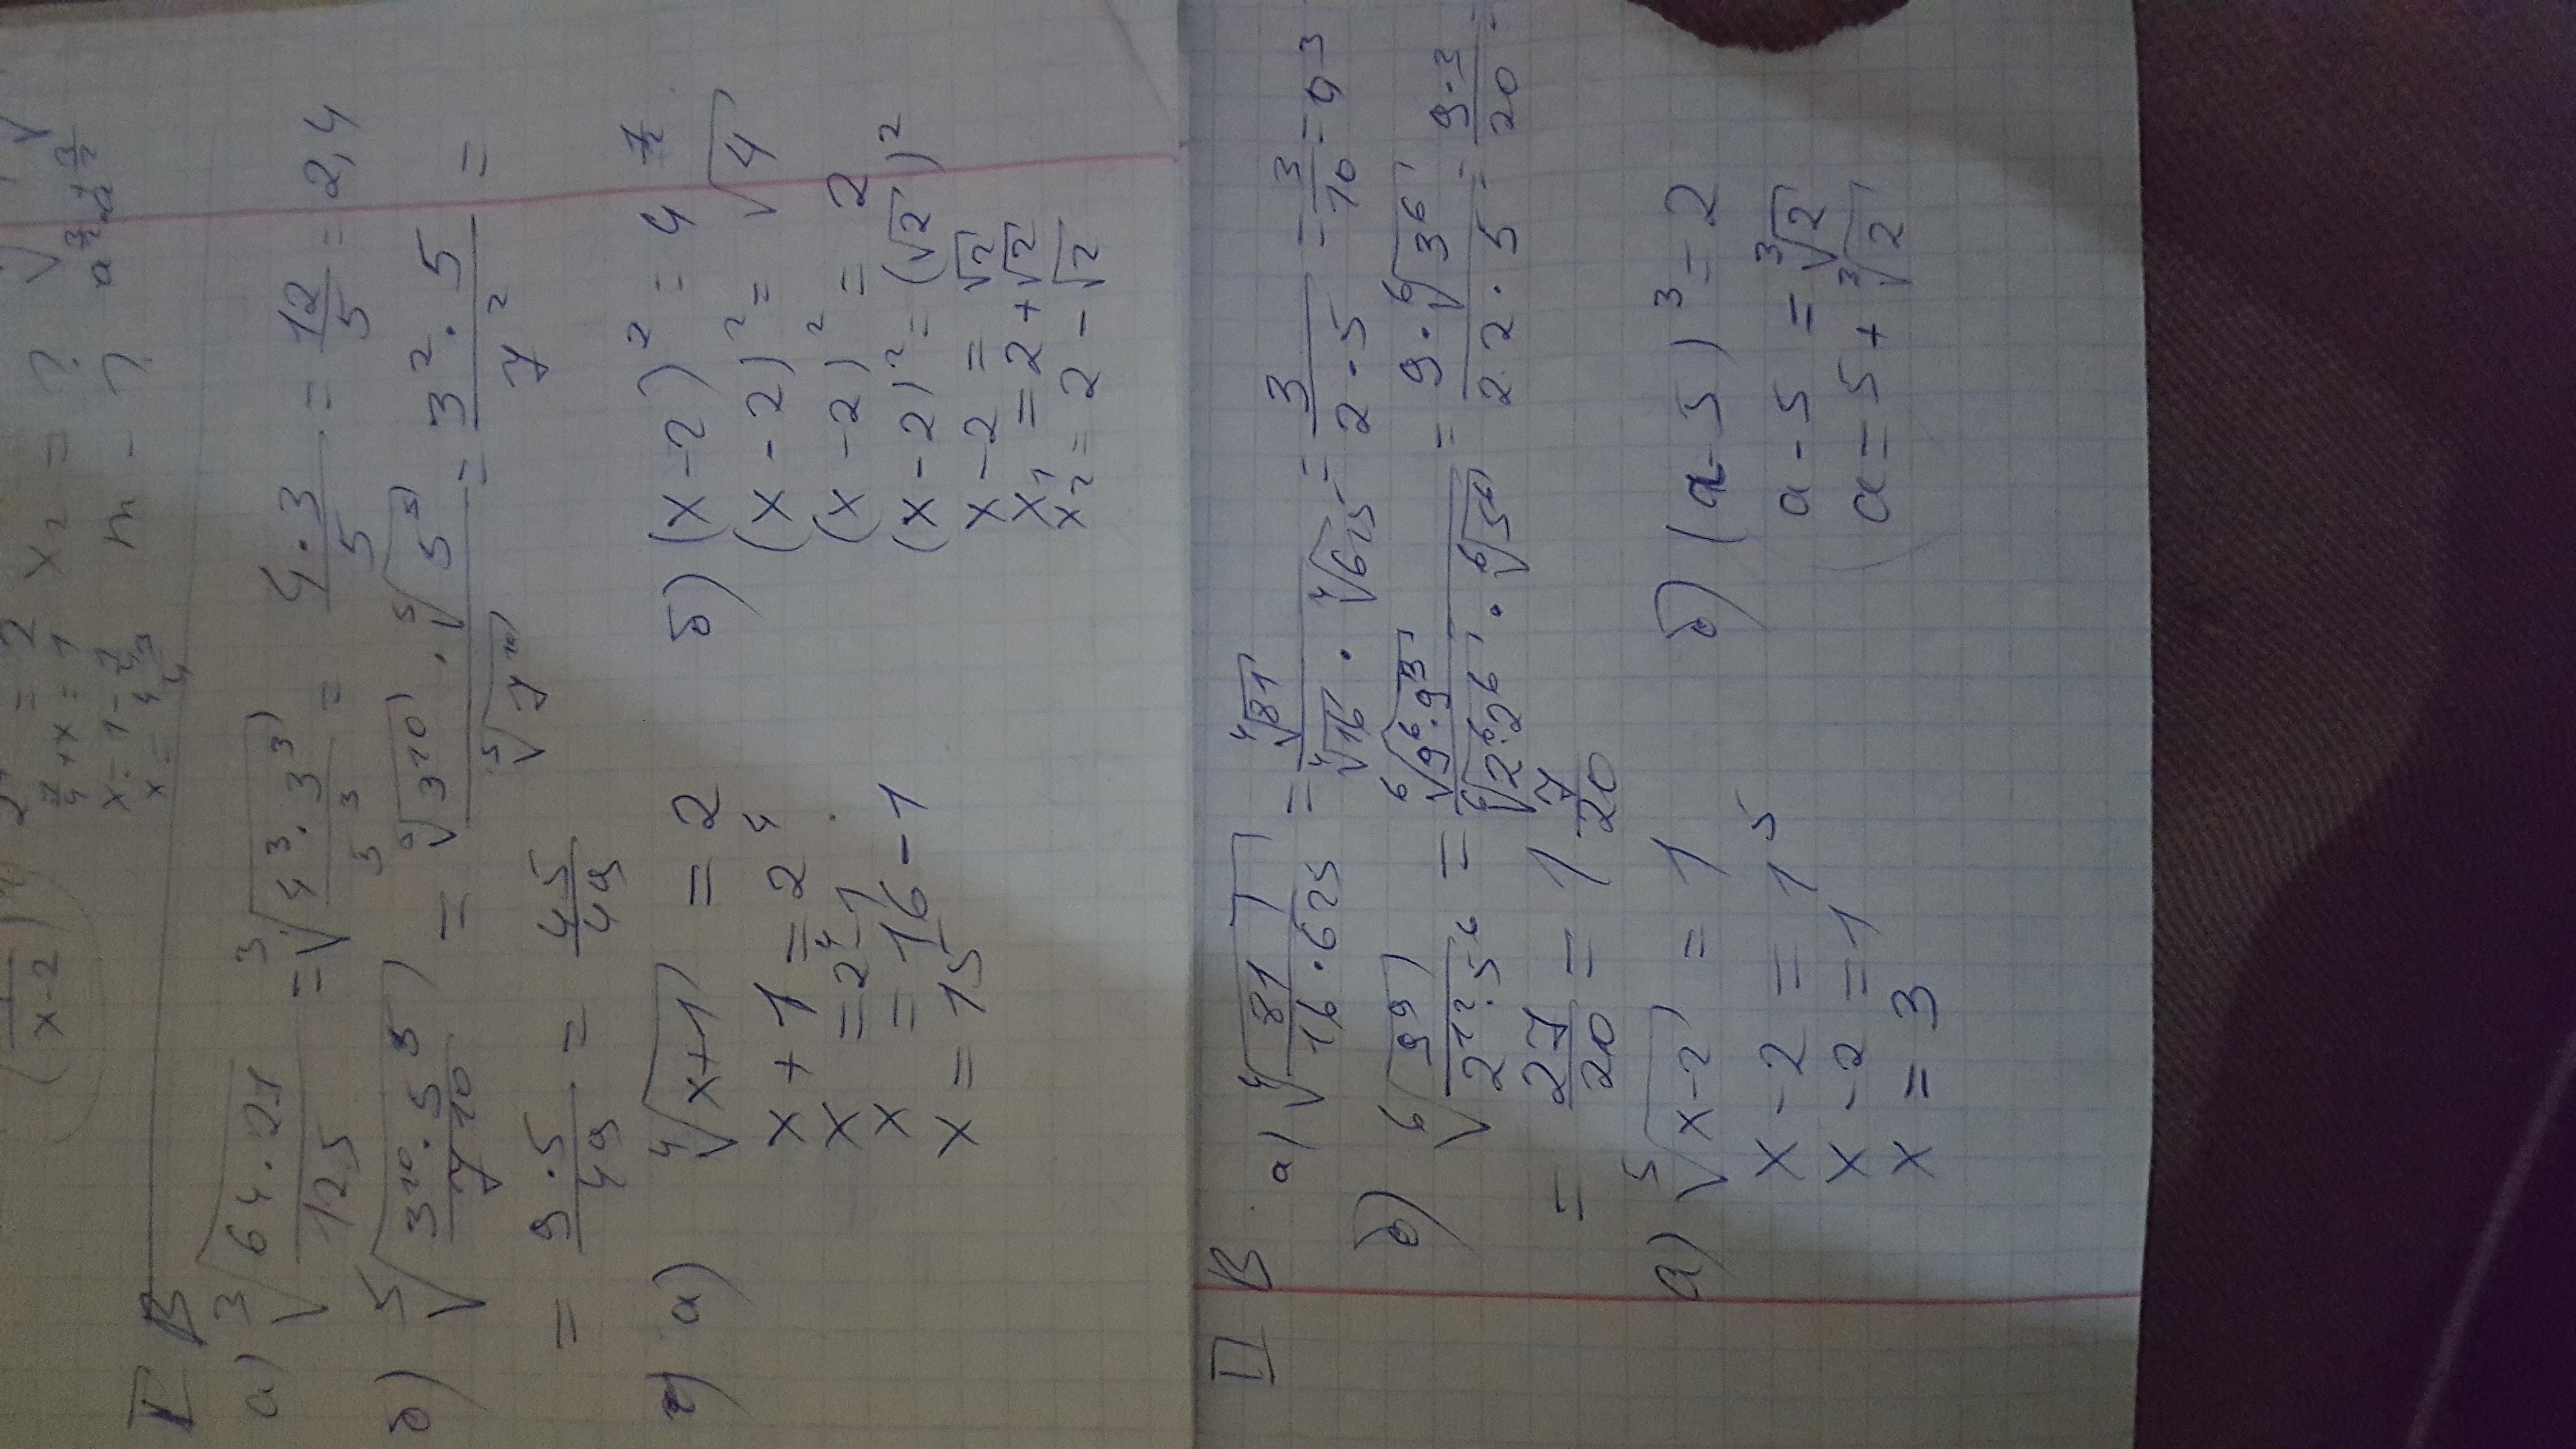 x-2
= 2 x₂ = ?
+ x = 1 m - ?
x = 1 -
x =
I В
а) ∛(64·27/125) = ∛(4³·3³/5³) = 4·3/5 = 12/5 = 2,4
б) ⁵√(3¹⁰·5⁵/7¹⁰) = ⁵√3¹⁰·⁵√5⁵/⁵√7¹⁰ = 3²·5/7² =
= 9·5/49 = 45/49
2) а) ⁴√(x+1) = 2
x + 1 = 2⁴
x = 2⁴ - 1
x = 16 - 1
x = 15
б) (x-2)² = 4
(x-2)² = √4
(x-2)² = 2
(x-2)² = (√2)²
x-2 = √2
x₁ = 2+√2
x₂ = 2-√2
II В
а) ⁴√(81/16·625) = ⁴√81/⁴√16·⁴√625 = 3/2·5 = 3/10 = 0,3
б) ⁶√(9⁹/2¹²·5⁶) = ⁶√(9⁶·9³)/⁶√(2⁶·2⁶)·⁶√5⁶ = 9·⁶√3⁶/2·2·5 = 9·3/20 =
= 27/20 = 1 7/20
а) ⁵√(x-2) = 1
x-2 = 1⁵
x-2 = 1
x = 3
б) (a-5)³ = 2
a-5 = ∛2
a = 5+∛2